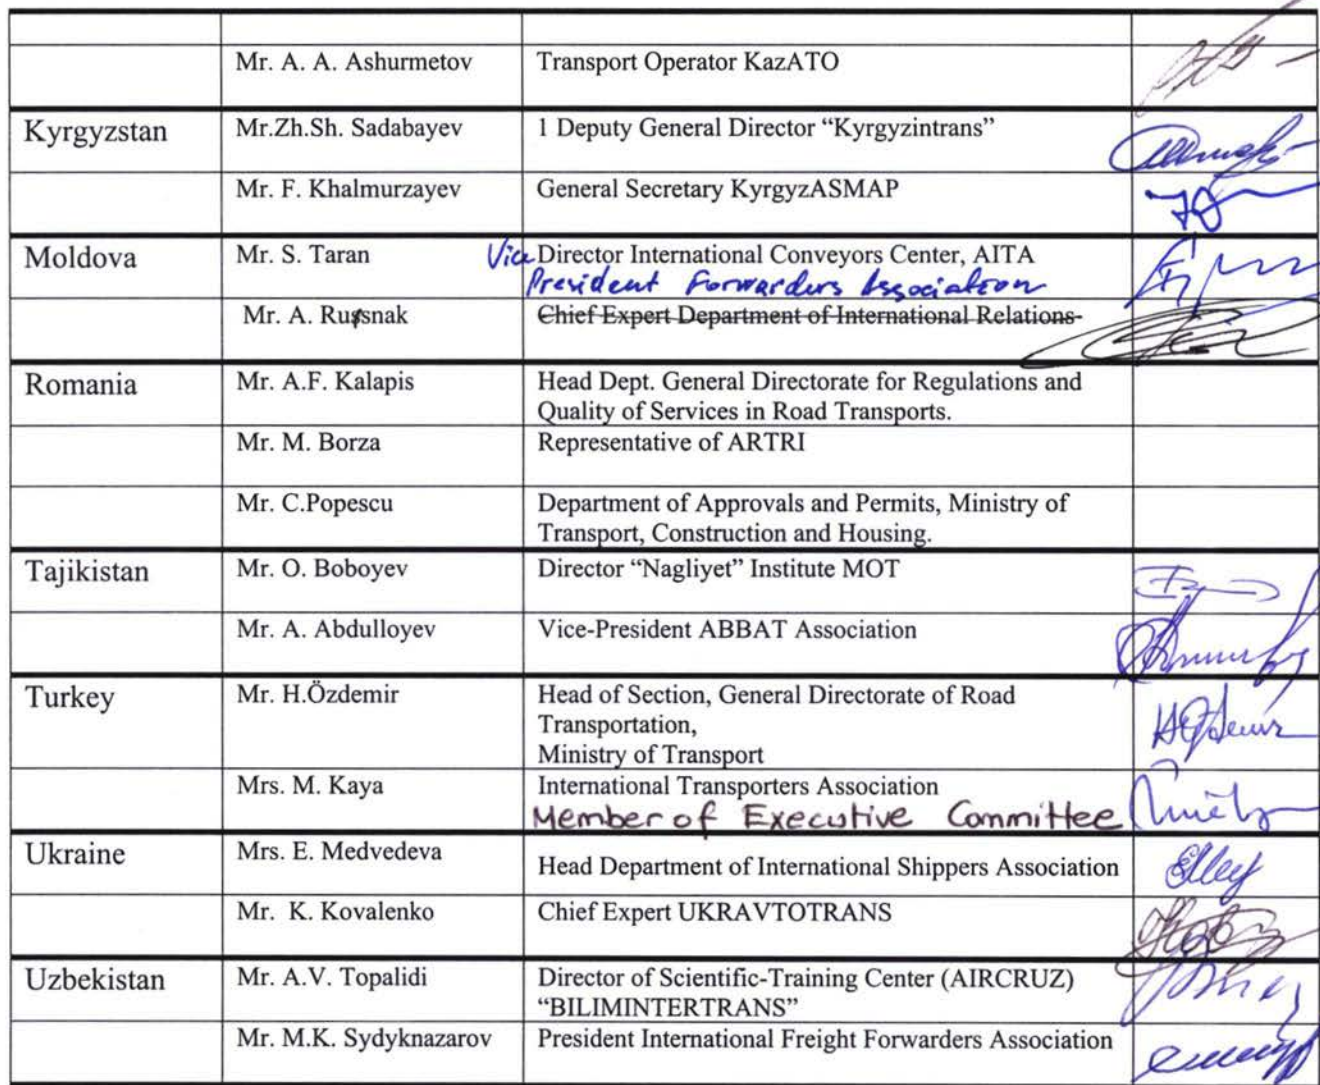 Mr. A. A. Ashurmetov Transport Operator KazATO
Kyrgyzstan Mr.Zh.Sh. Sadabayev 1 Deputy General Director “Kyrgyzintrans”
Mr. F. Khalmurzayev General Secretary KyrgyzASMAP
Moldova Mr. S. Taran Vice Director International Conveyors Center, AITA
President Forwarders Association
Mr. A. Russnak Chief Expert Department of International Relations
Romania Mr. A.F. Kalapis Head Dept. General Directorate for Regulations and
Quality of Services in Road Transports.
Mr. M. Borza Representative of ARTRI
Mr. C.Popescu Department of Approvals and Permits, Ministry of
Transport, Construction and Housing.
Tajikistan Mr. O. Boboyev Director “Nagliyet” Institute MOT
Mr. A. Abdulloyev Vice-President ABBAT Association
Turkey Mr. H.Özdemir Head of Section, General Directorate of Road
Transportation,
Ministry of Transport
Mrs. M. Kaya International Transporters Association
Member of Executive Committee
Ukraine Mrs. E. Medvedeva Head Department of International Shippers Association
Mr. K. Kovalenko Chief Expert UKRAVTOTRANS
Uzbekistan Mr. A.V. Topalidi Director of Scientific-Training Center (AIRCRUZ)
“BILIMINTERTRANS”
Mr. M.K. Sydyknazarov President International Freight Forwarders Association